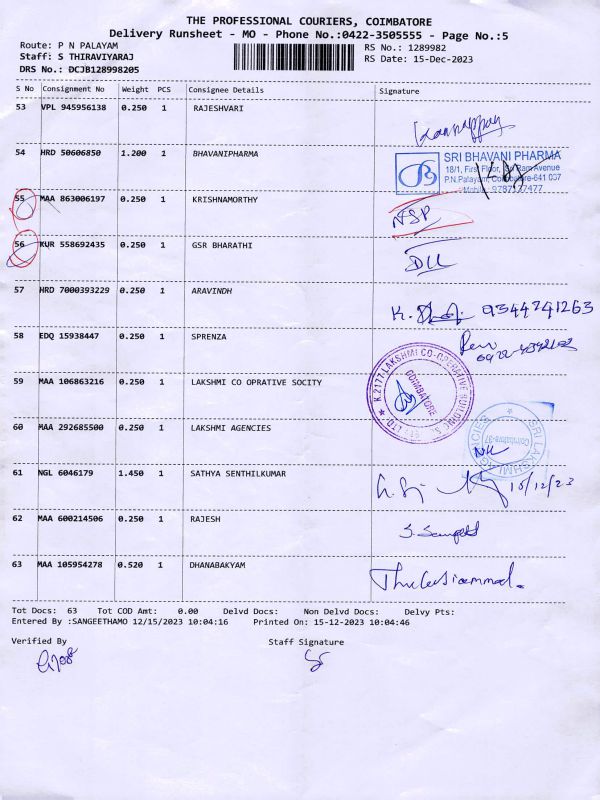 THE PROFESSIONAL COURIERS, COIMBATORE
Delivery Runsheet - MO - Phone No.:0422-3505555 - Page No.:5
Route: P N PALAYAM RS No.: 1289982
Staff: S THIRAVIYARAJ RS Date: 15-Dec-2023
DRS No.: DCJB128998205
S No Consignment No Weight PCS Consignee Details Signature
53 VPL 945956138 0.250 1 RAJESHVARI
54 HRD 50606850 1.200 1 BHAVANIPHARMA
SRI BHAVANI PHARMA
18/1, First Floor, Sri Ram Avenue
P.N.Palayam, Coimbatore-641 037
Mobile: 9787127477
55 MAA 863006197 0.250 1 KRISHNAMORTHY NSP
56 KUR 558692435 0.250 1 GSR BHARATHI DLL
57 HRD 7000393229 0.250 1 ARAVINDH 9344741263
58 EDQ 15938447 0.250 1 SPRENZA
59 MAA 106863216 0.250 1 LAKSHMI CO OPRATIVE SOCITY
K.2177 LAKSHMI CO-OPERATIVE BUILDING LTD.
COIMBATORE
60 MAA 292685500 0.250 1 LAKSHMI AGENCIES
SRI LAKSHMI AGENCIES
Coimbatore-37
61 NGL 6046179 1.450 1 SATHYA SENTHILKUMAR 15/12/23
62 MAA 600214506 0.250 1 RAJESH
63 MAA 105954278 0.520 1 DHANABAKYAM
Tot Docs: 63 Tot COD Amt: 0.00 Delvd Docs: Non Delvd Docs: Delvy Pts:
Entered By :SANGEETHAMO 12/15/2023 10:04:16 Printed On: 15-12-2023 10:04:46
Verified By Staff Signature